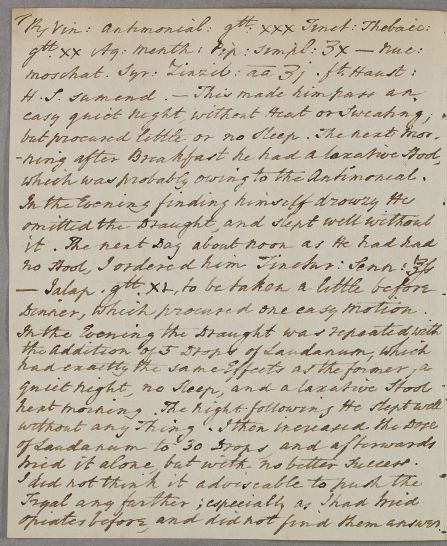 ℞ Vin: Antimonial: gtt. XXX Tinct: Thebaic:
gtt XX Aq: Menth: Pip: simpl: ʒx — Nuc:
moschat. Syr: Zinzib: aa ʒj. ft. Haust:
H. S. sumend. — This made him pass an
easy quiet Night, without Heat or Sweating,
but procured little or no Sleep. The next Mor-
-ning after Breakfast he had a laxative Stool,
which was probably owing to the Antimonial.
In the Evening finding himself drowzy He
omitted the Draught, and slept well without
it. The next Day about noon as He had had
no Stool, I ordered him Tinctur: Senn:
— Jalap. gtt. XL, to be taken a little before
Dinner, which procured one easy motion.
In the Evening the Draught was repeated, with
the Addition of 5 Drops of Laudanum, which
had exactly the same Effects as the former, a
quiet night, no Sleep, and a laxative Stool
next morning. The night following He slept well
without any Thing. I then increased the Dose
of Laudanum to 30 Drops, and afterwards
tried it alone, but with no better Success.
I did not think it adviseable to push the
Tryal any further; especially as I had tried
opiates before, and did not find them answer.